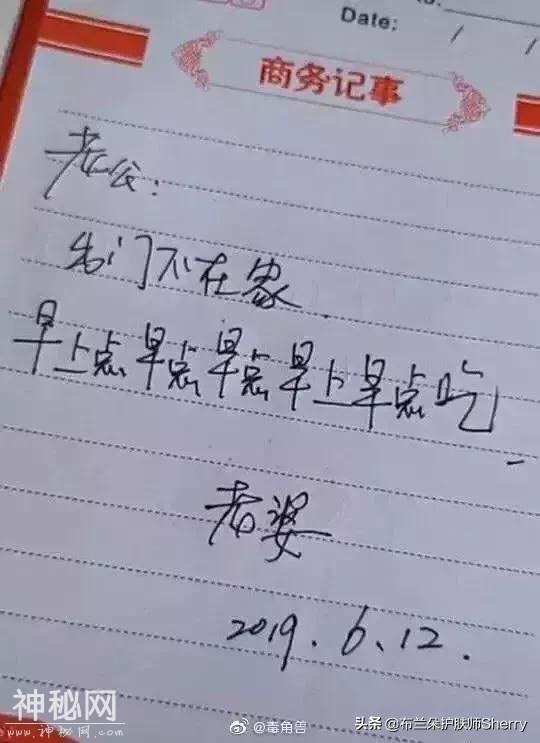 Date: / /
商务记事
老公：
出门不在家
早上点早点早点早上早点吃
老婆
2019.6.12.
神秘网
www.神秘网.com
@毒角兽
头条@布兰朵护肤师Sherry